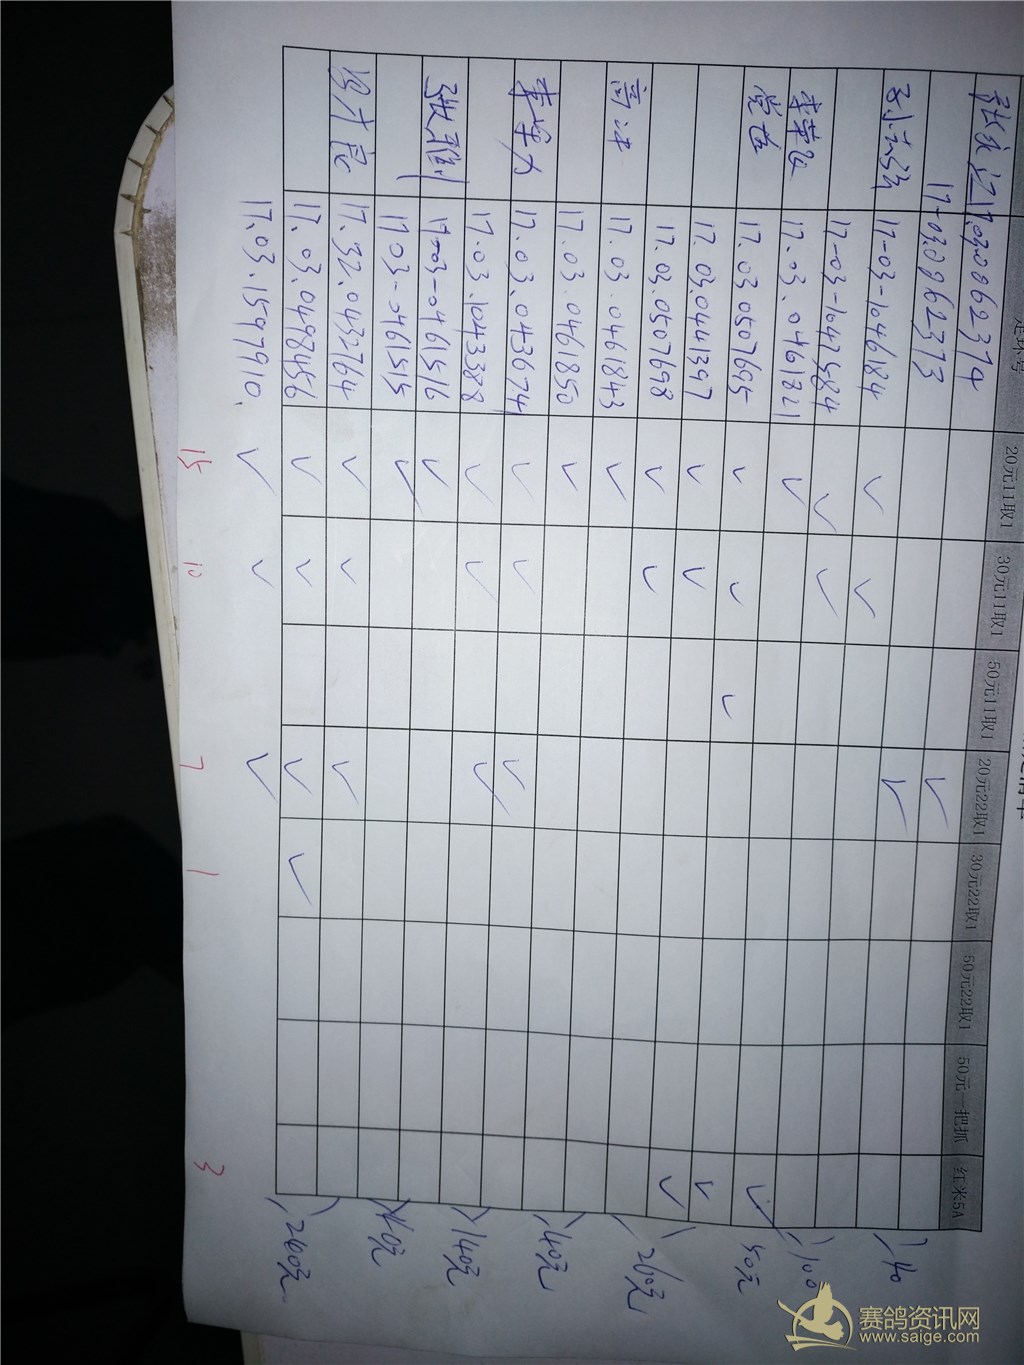 足环号 20元11取1 30元11取1 50元11取1 20元22取1 30元22取1 50元22取1 50元一把抓 红米5A
17.03.0962374
17-03.0962373
17-03-1046184 ✓ ✓
140
17-03-1047584 ✓ ✓
17.03.0461221 ✓
100
17.03.0507695 ✓ ✓ ✓ ✓
50元
17.03.0441397 ✓ ✓ ✓
17.03.0507698 ✓ ✓ ✓
高冰 17.03.0461843 ✓
260元
17.03.0461850 ✓
17.03.043674 ✓ ✓ ✓
140元
17.03.1043388 ✓ ✓ ✓
140元
张利 17-03-0461516 ✓
17.03-0461515 ✓
40元
17.32.0432764 ✓ ✓ ✓
17.03.0498456 ✓ ✓ ✓ ✓
260元
17.03.1597910. ✓ ✓ ✓
15 10 7 1 3
赛鸽资讯网
www.saige.com